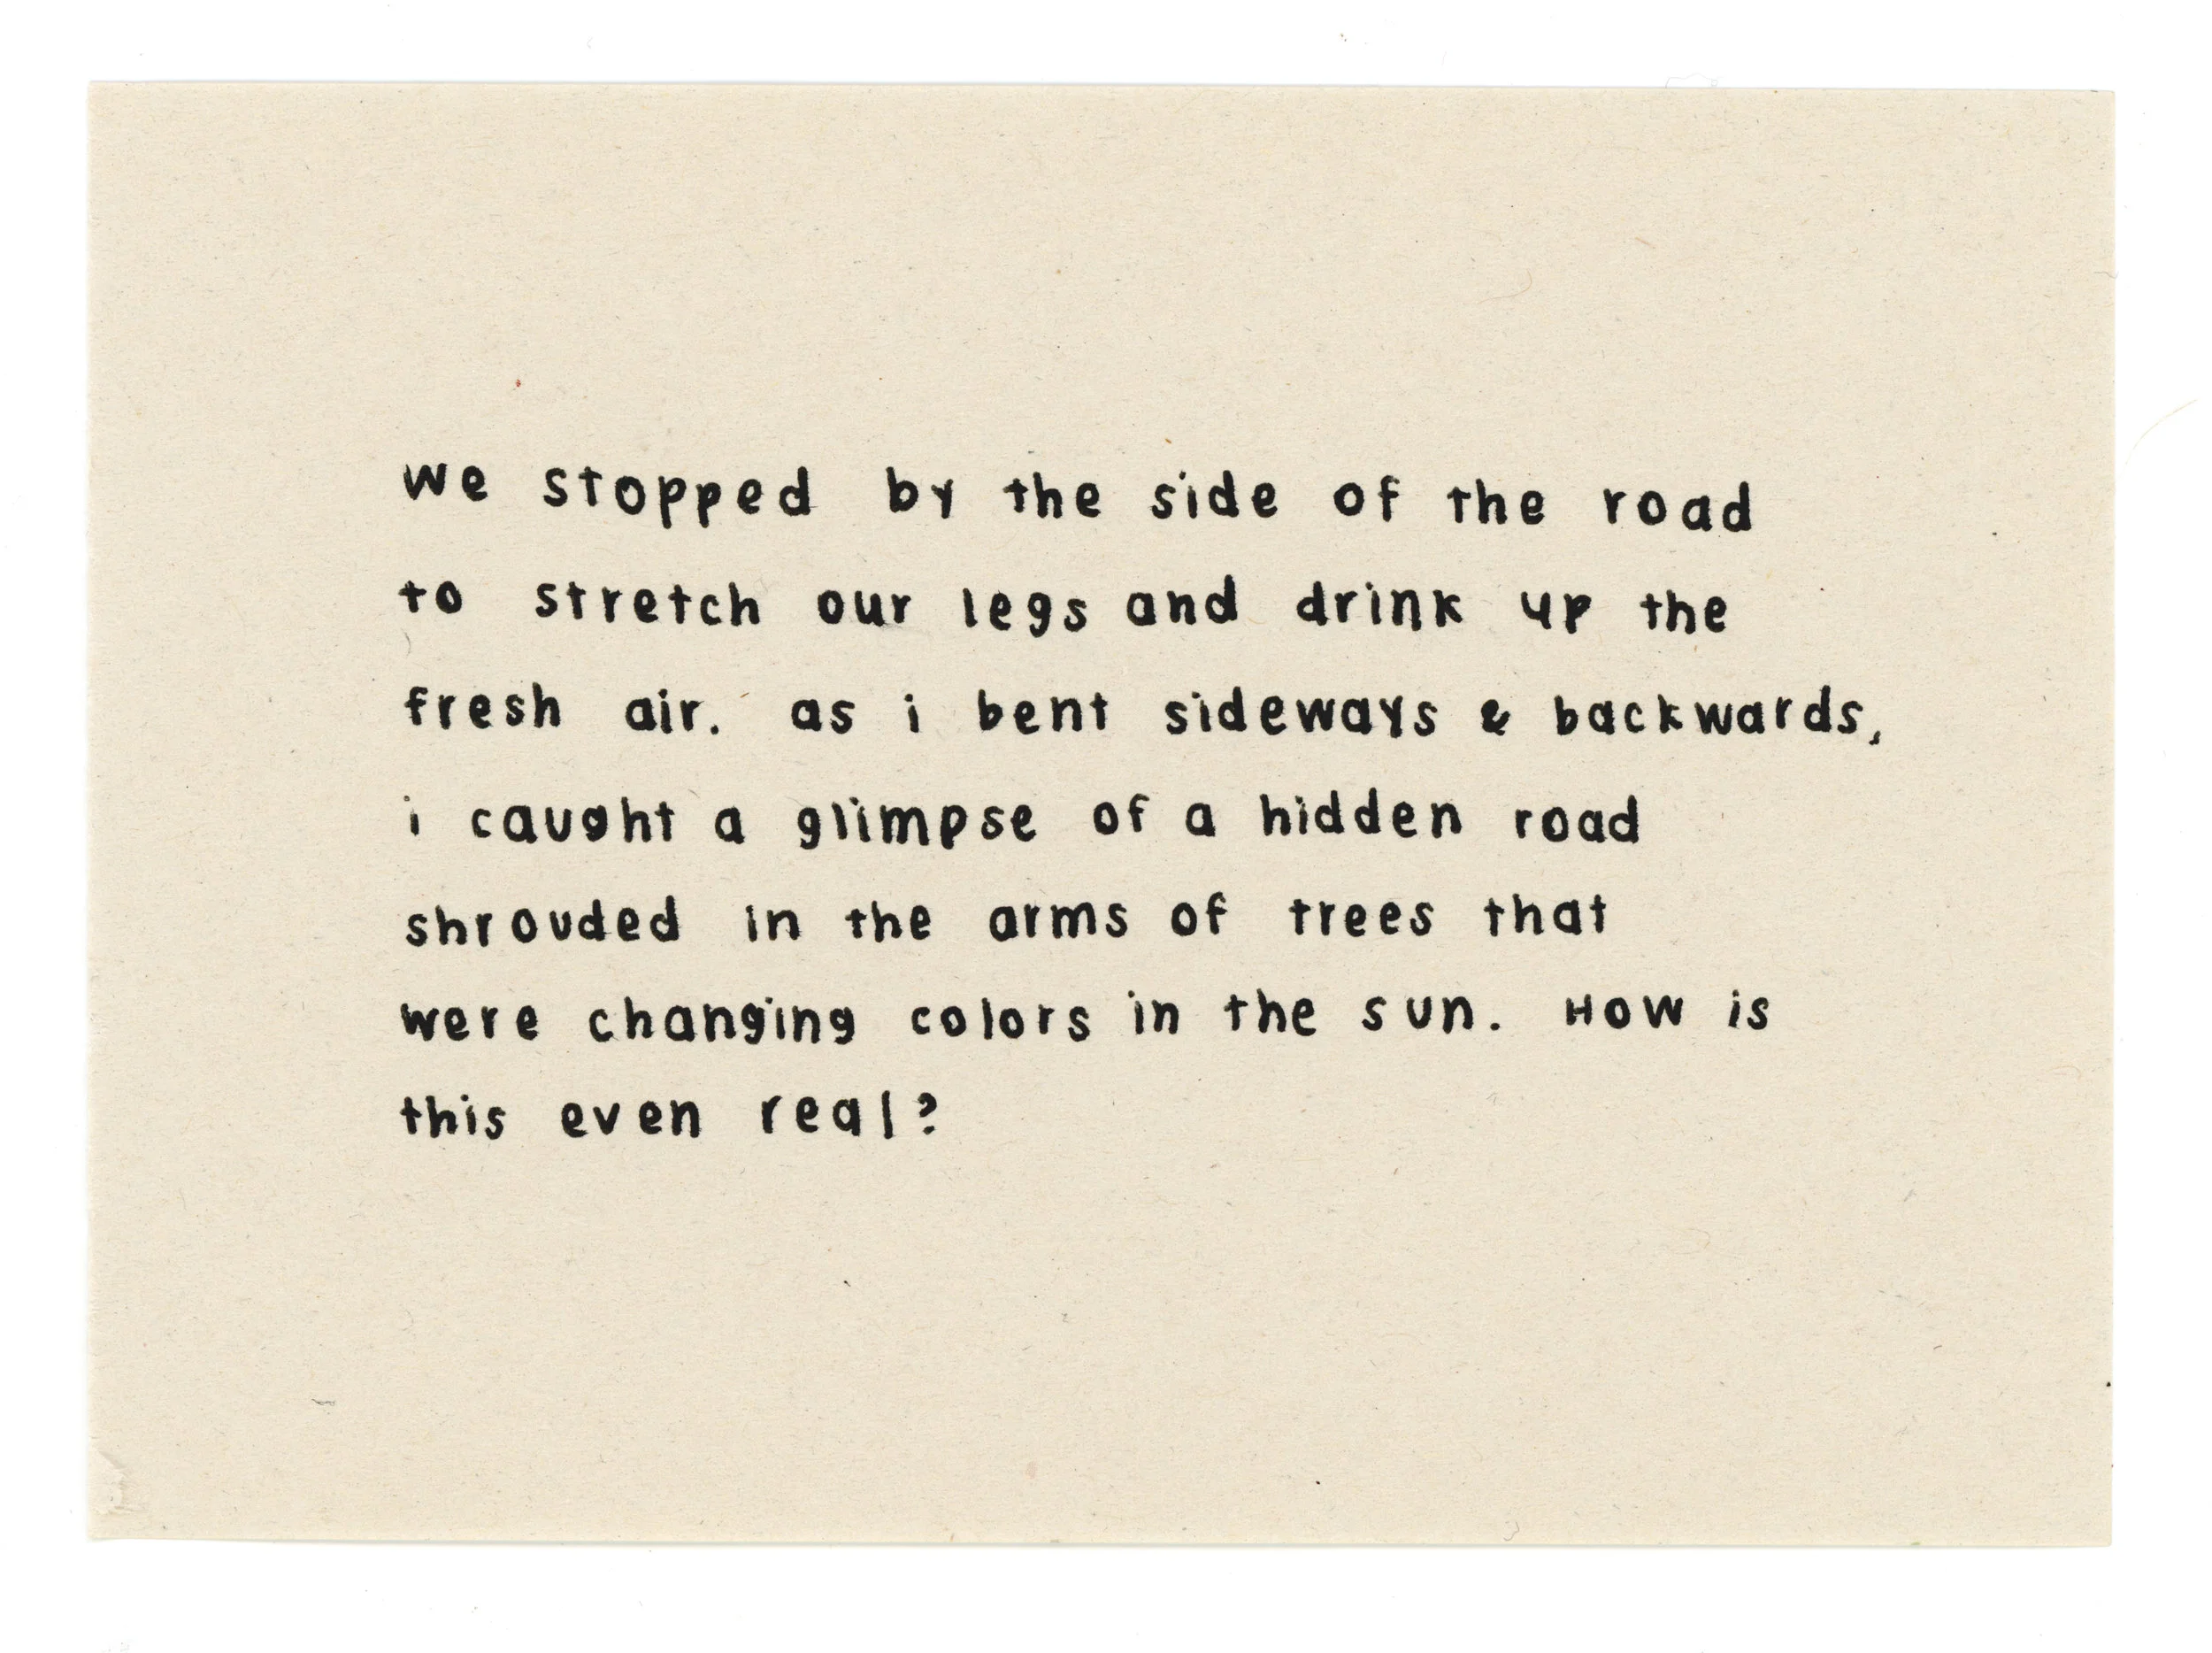 we stopped by the side of the road
to stretch our legs and drink up the
fresh air. as i bent sideways & backwards,
i caught a glimpse of a hidden road
shrouded in the arms of trees that
were changing colors in the sun. How is
this even real?